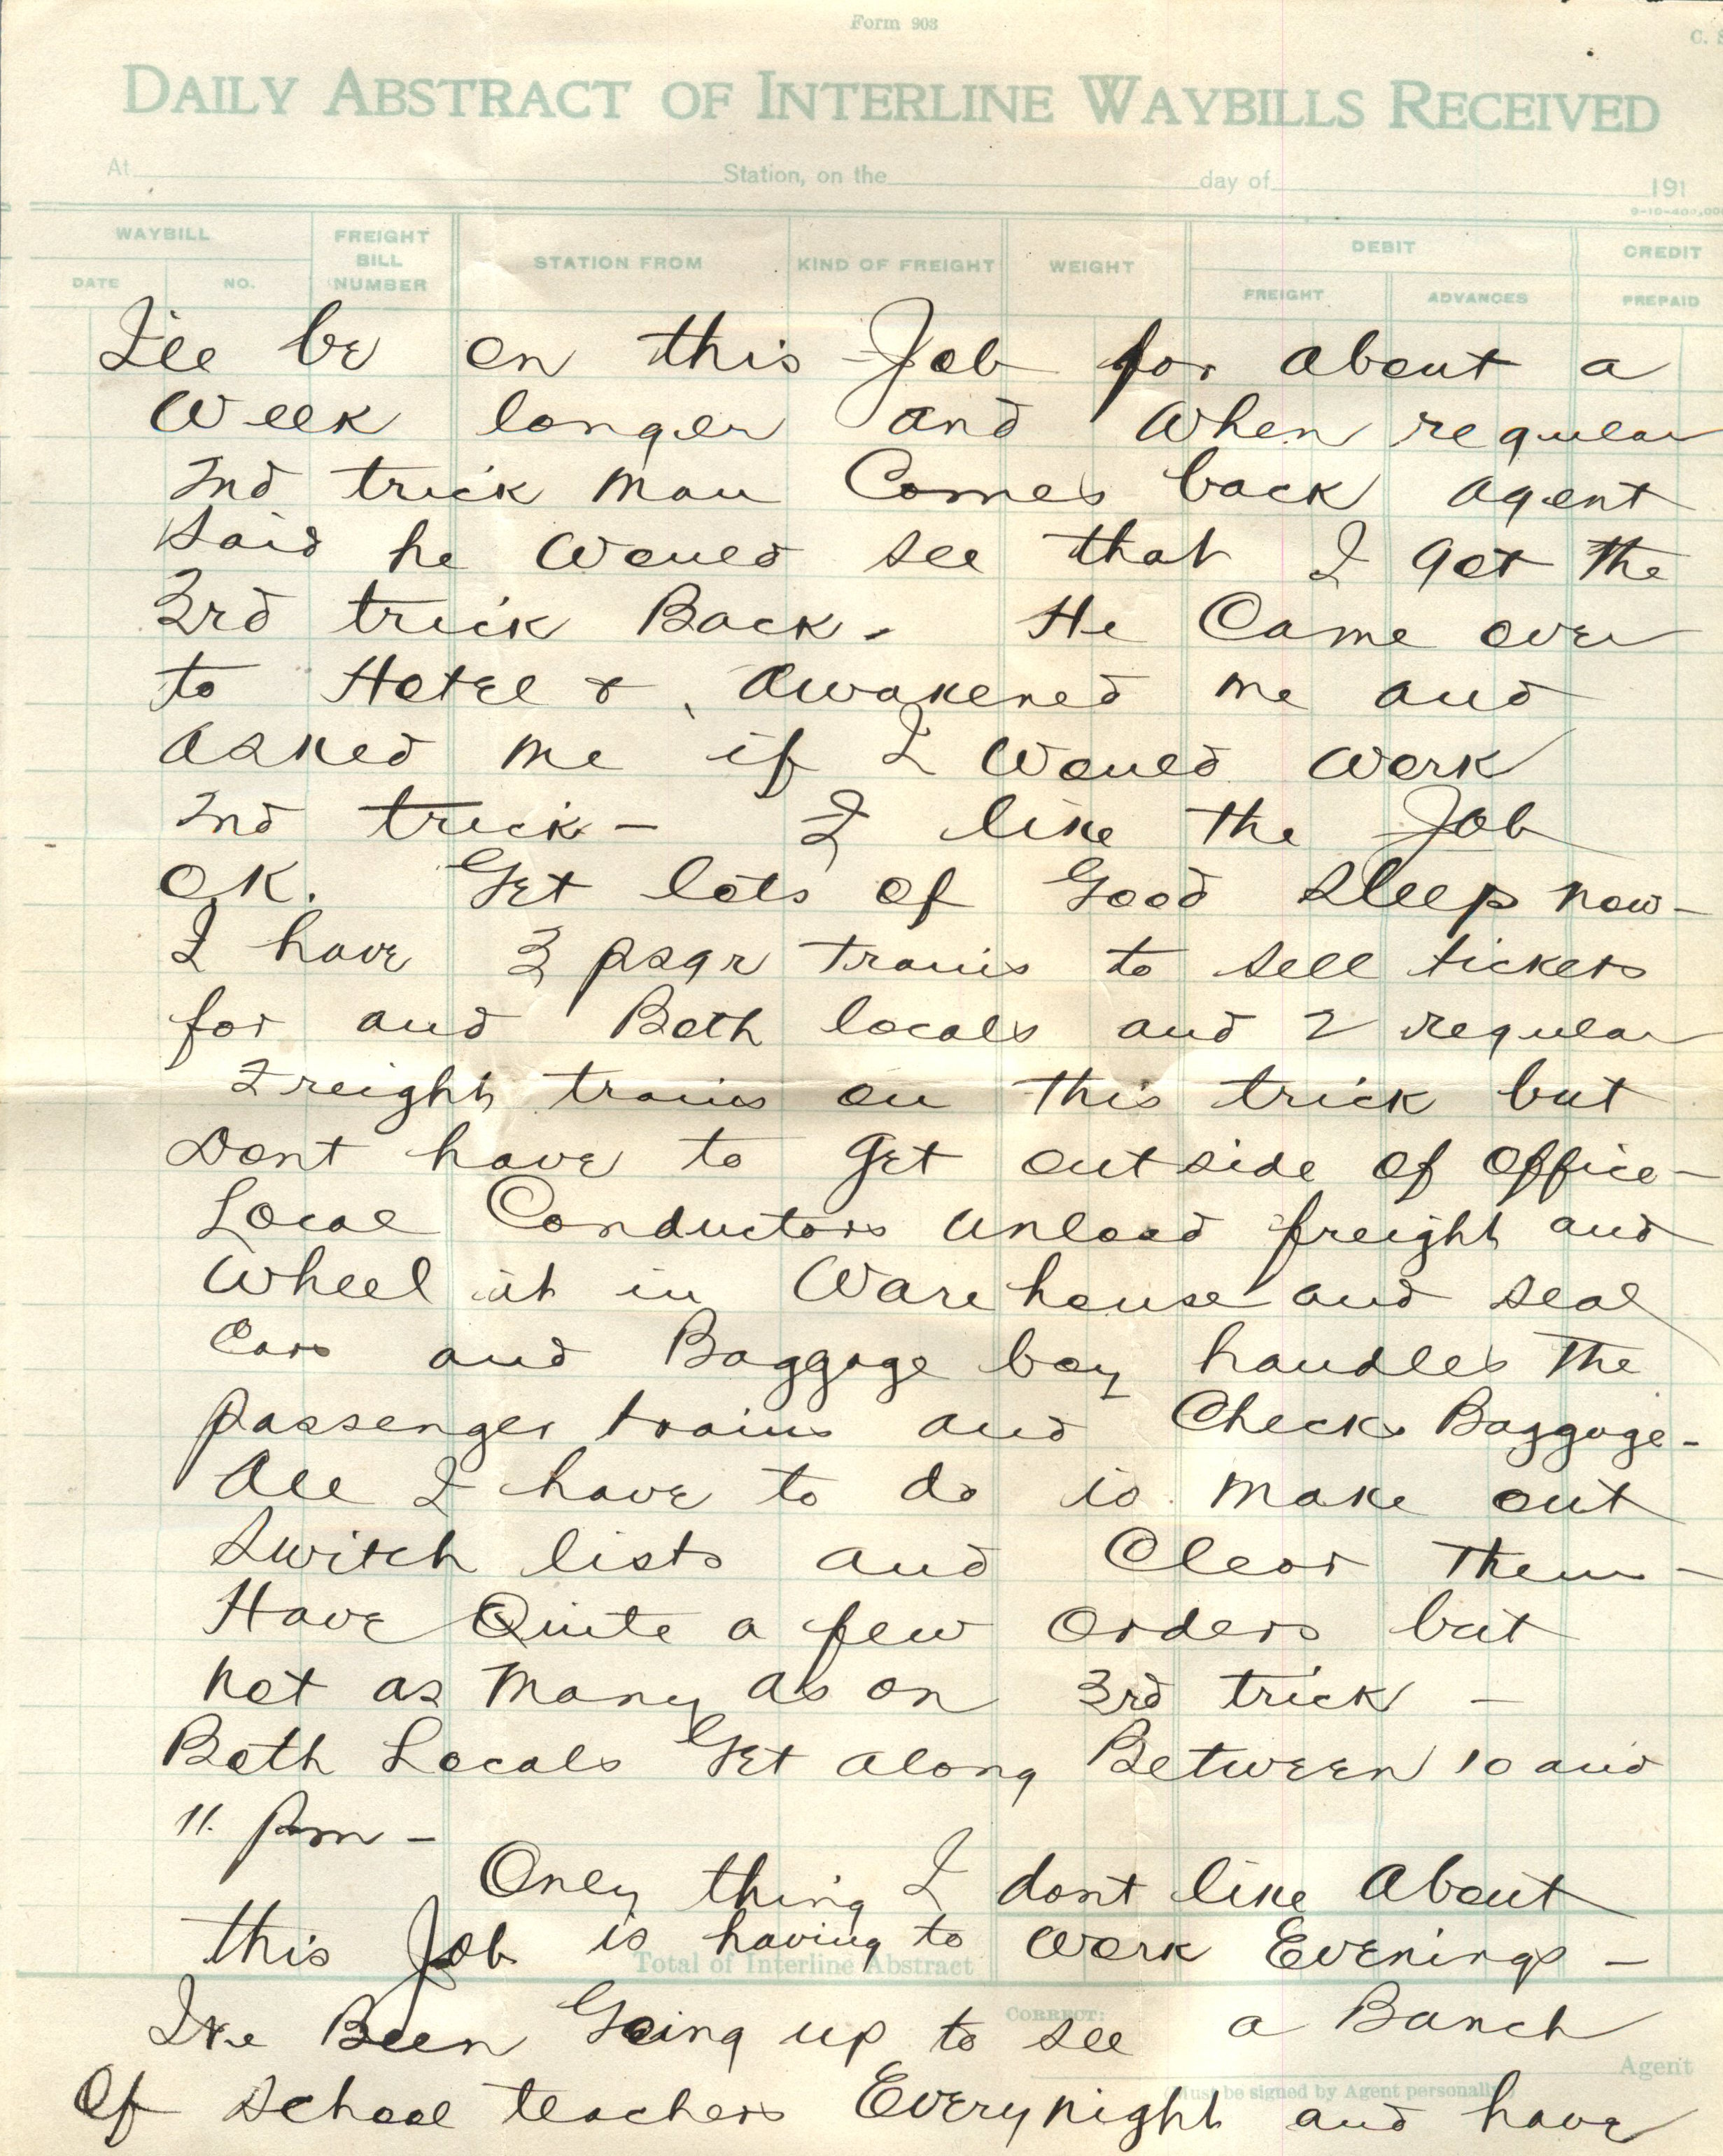 Form 903
C. S
DAILY ABSTRACT OF INTERLINE WAYBILLS RECEIVED
At Station, on the day of 191
9-10-400,000
WAYBILL FREIGHT BILL NUMBER STATION FROM KIND OF FREIGHT WEIGHT DEBIT CREDIT
DATE NO. FREIGHT ADVANCES PREPAID
I'll be on this Job for about a
Week longer and When regular
2nd trick man Comes back agent
said he Would see that I got the
3rd trick Back - He Came over
to Hotel & Awakened me and
asked me if I Would Work
2nd trick - I like the Job
OK. Get lots of Good sleep now -
I have 3 psgr trains to sell tickets
for and Both locals and 2 regular
Freight trains on this trick but
Dont have to get outside of office -
Local Conductors unload freight and
Wheel it in Ware house and seal
Cars and Baggage boy handles the
passenger trains and Checks Baggage -
All I have to do is make out
switch lists and Clear them -
Have Quite a few orders but
not as many as on 3rd trick -
Both Locals Get along Between 10 and
11. Pm -
Only thing I dont like About
this Job is having to Work Evenings -
Total of Interline Abstract
CORRECT:
Ive Been Going up to see a Bunch
Agent
(Must be signed by Agent personally)
Of school teachers Every night and have